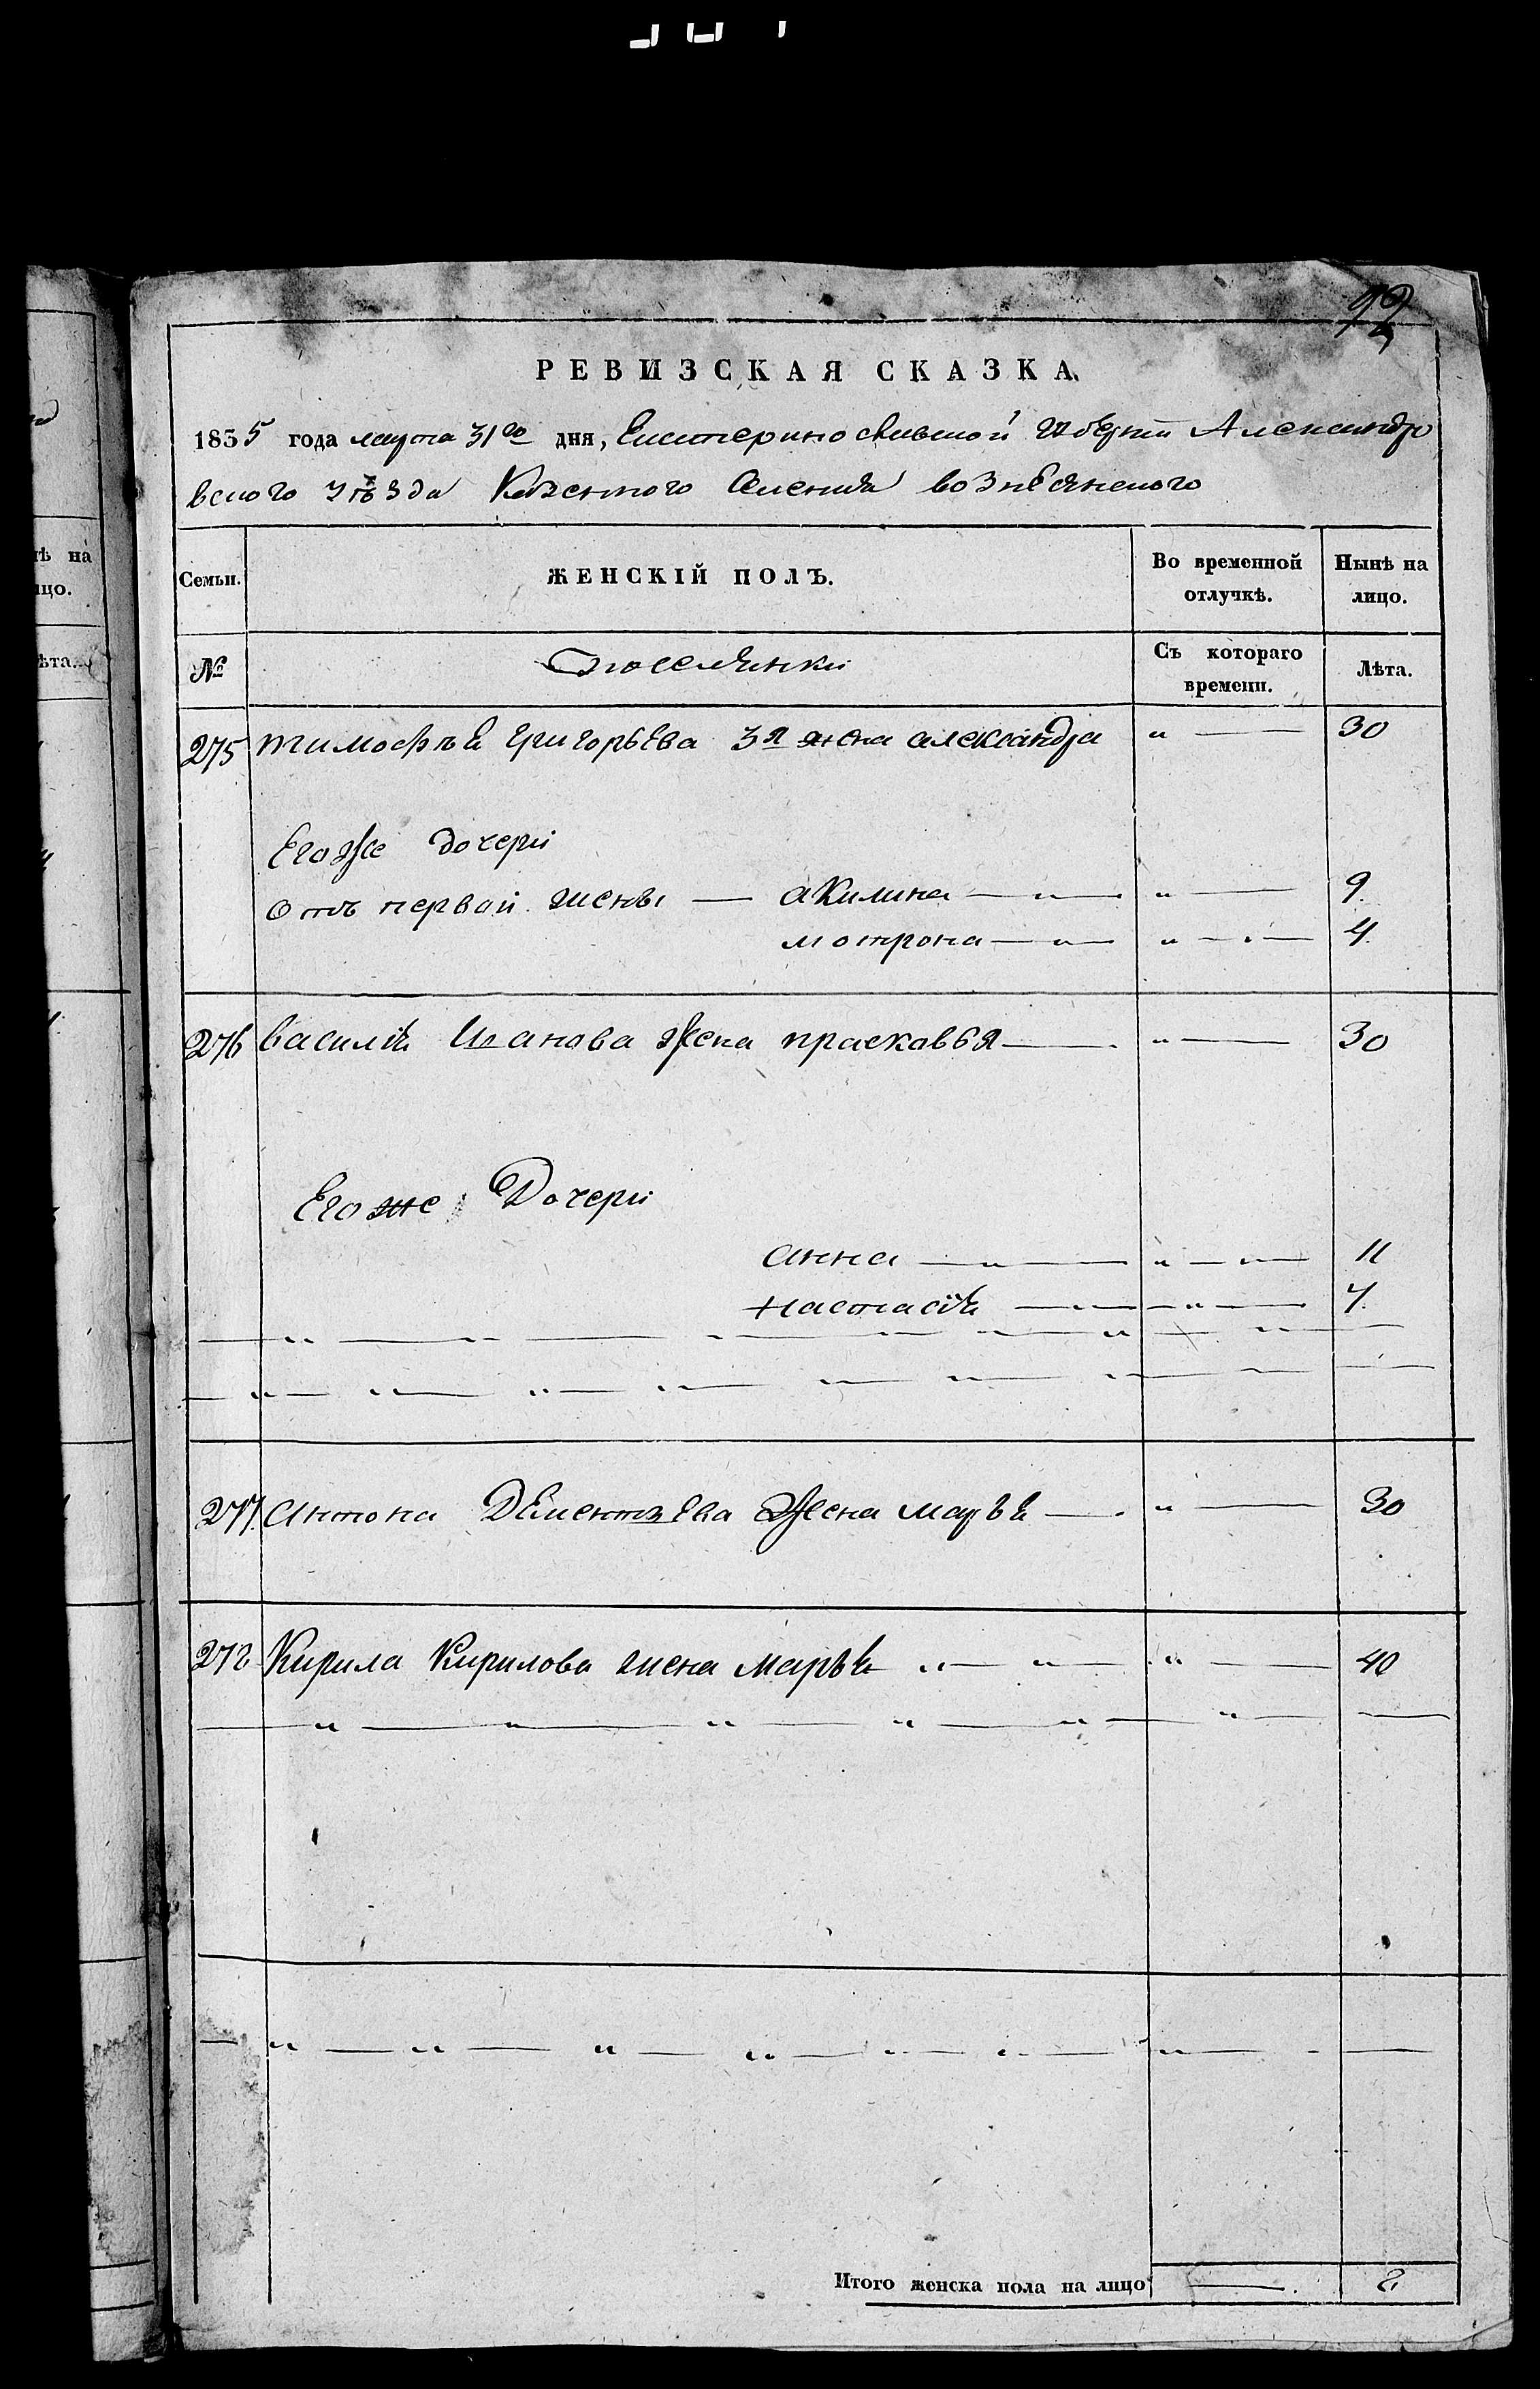 92
РЕВИЗСКАЯ СКАЗКА.
1835 года марта 31го дня, Екатеринославской Губерніи Александро
вского уѣзда Казенного Селенія вознесенского
Семьи. ЖЕНСКІЙ ПОЛЪ. Во временной отлучкѣ. Нынѣ на лицо.
№ поселянки Съ котораго времени. Лѣта.
275 тимофѣя григорьева 3я жена александра " — 30
Его же дочери
Отъ первой жены — акилина — " — " — 9.
мотрона — " — " — " — 4.
276 василія Иванова жена прасковья — " — 30
Его же Дочери
анна — " — " — " — 11
настасія — " — " — 7.
277. антона Дементьева жена марья — " — 30
278 Кирила Кирилова жена марья " — " — " — 40
Итого женска пола на лицо — 8.
нѣ на
лицо.
ѣта.